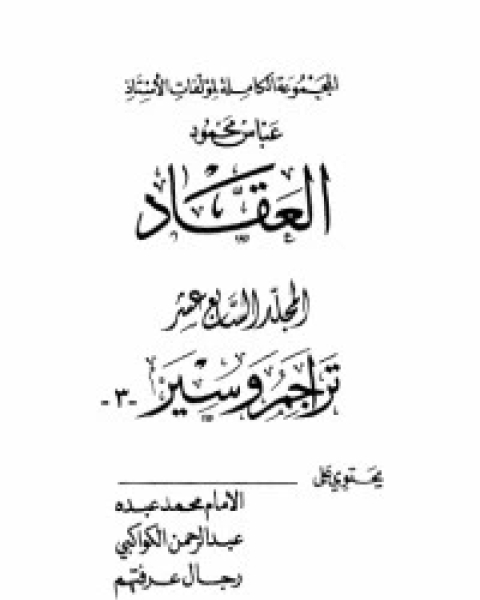 المجموعة الكاملة لمؤلفات الأستاذ
عباس محمود
العقاد
المجلد السابع عشر
تراجم وسير -٣-
يحتوي على
الامام محمد عبده
عبدالرحمن الكواكبي
رجال عرفتهم